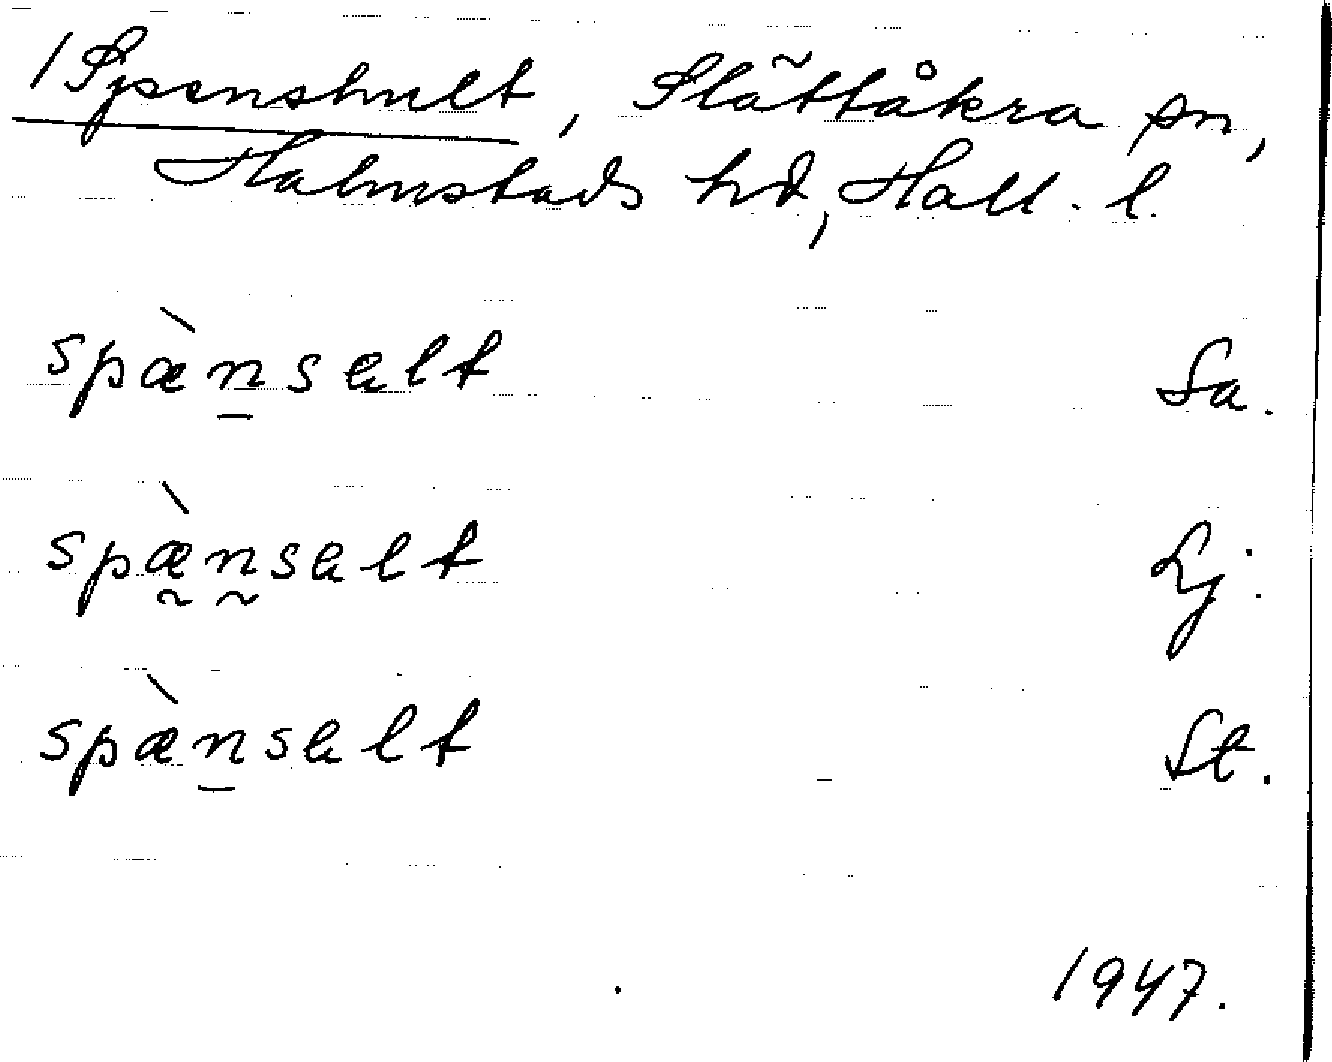 /Spenshult, Slättåkra sn,
Halmstads hd, Hall. l.
spæ̀nsalt Sa.
spæ̀nsalt Lj.
spæ̀nsalt St.
1947.